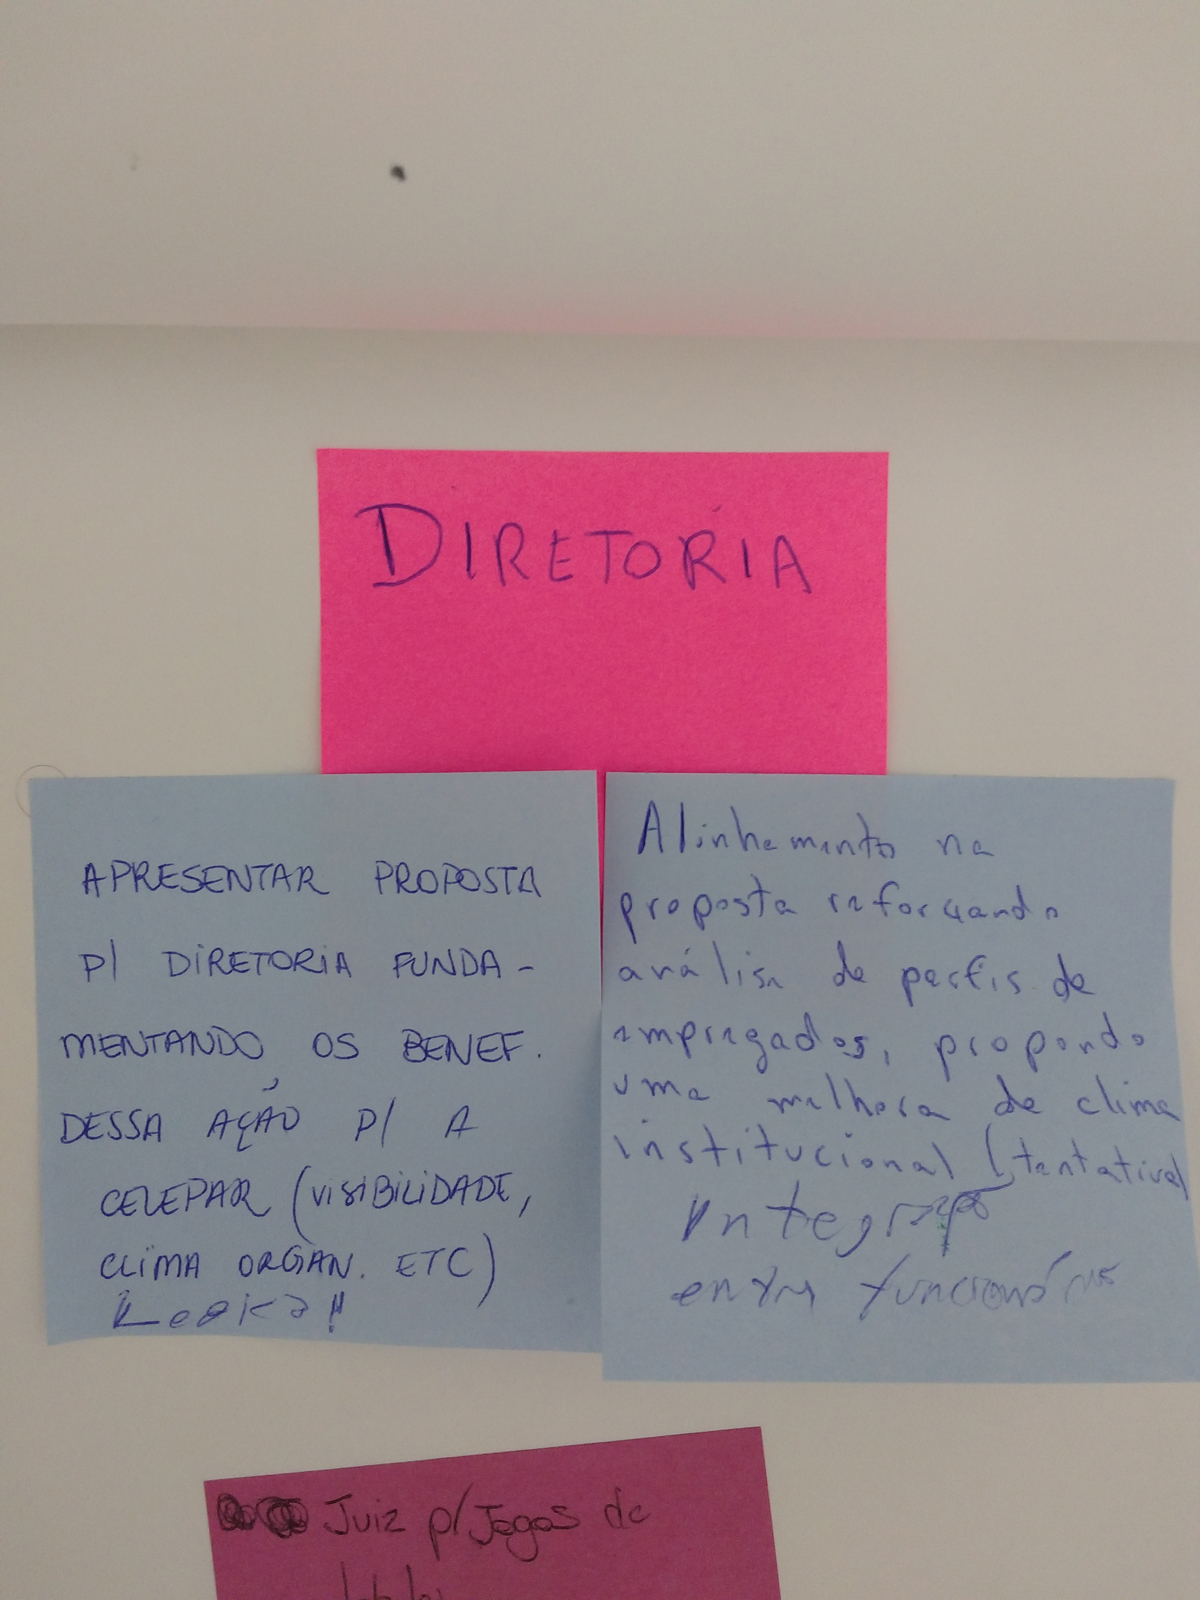 DIRETORIA
APRESENTAR PROPOSTA
P/ DIRETORIA FUNDA-
MENTANDO OS BENEF.
DESSA AÇÃO P/ A
CELEPAR (VISIBILIDADE,
CLIMA ORGAN. ETC)
Alinhamento na
proposta reforçando
análise de perfis de
empregados, propondo
uma melhora de clima
institucional (tentativa)
Integração
entre funcionários
Juiz p/ Jogos de